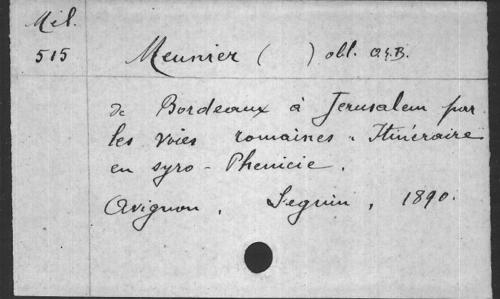 Mél.
515
Meunier ( ) obl. O.S.B.
de Bordeaux à Jerusalem par
les voies romaines. Itinéraire
en syro-Phenicie.
Avignon, Seguin, 1890.